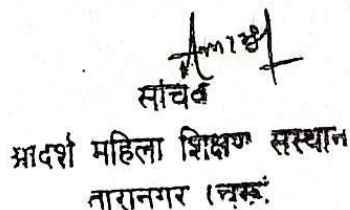 सचिव
आदर्श महिला शिक्षण संस्थान
तारानगर (चूरू)